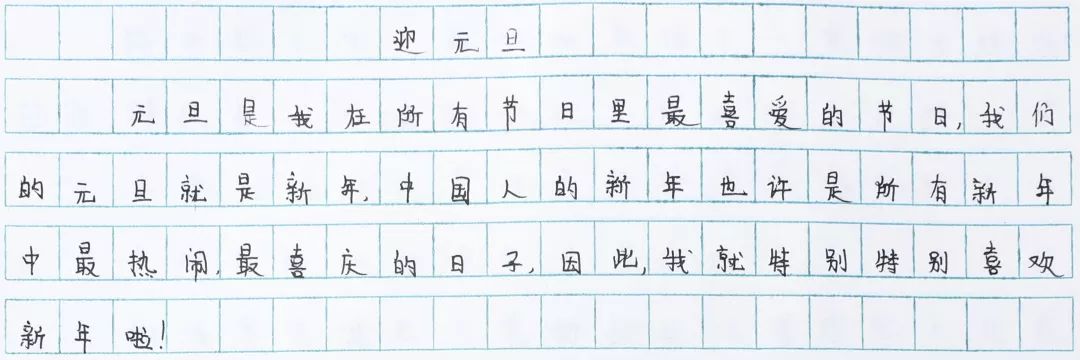 迎元旦
元旦是我在所有节日里最喜爱的节日,我们
的元旦就是新年,中国人的新年也许是所有新年
中最热闹,最喜庆的日子,因此,我就特别特别喜欢
新年啦!